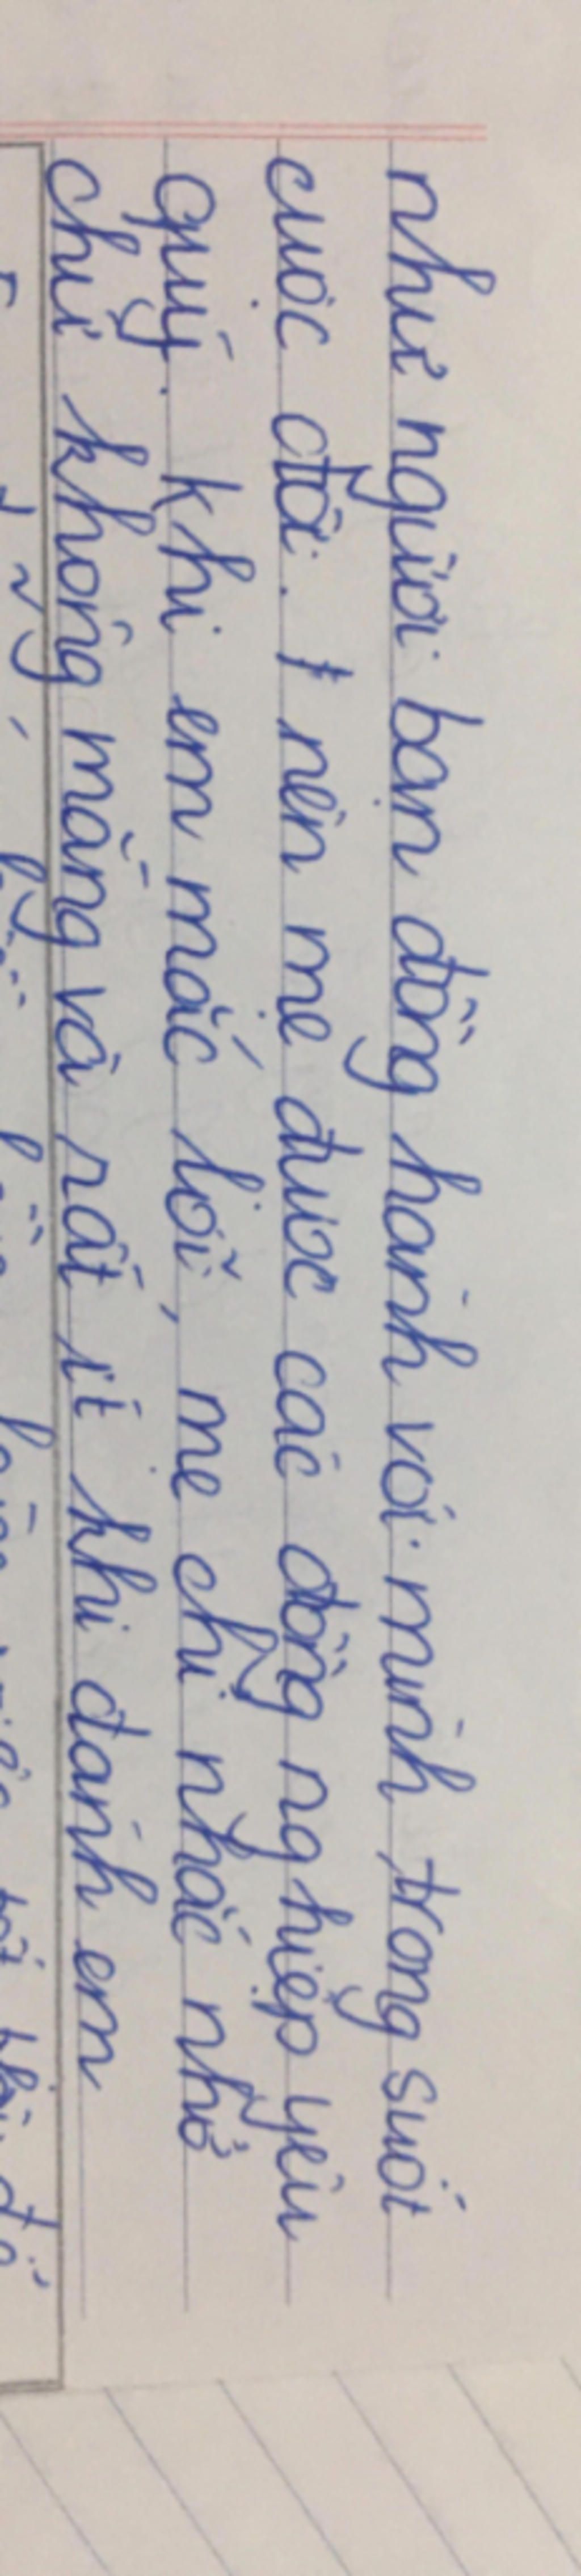 như người bạn đồng hành với mình trong suốt
cuộc đời. nên mẹ được các đồng nghiệp yêu
quý. khi em mắc lỗi, mẹ chỉ nhắc nhở
chứ không mắng và rất ít khi đánh em